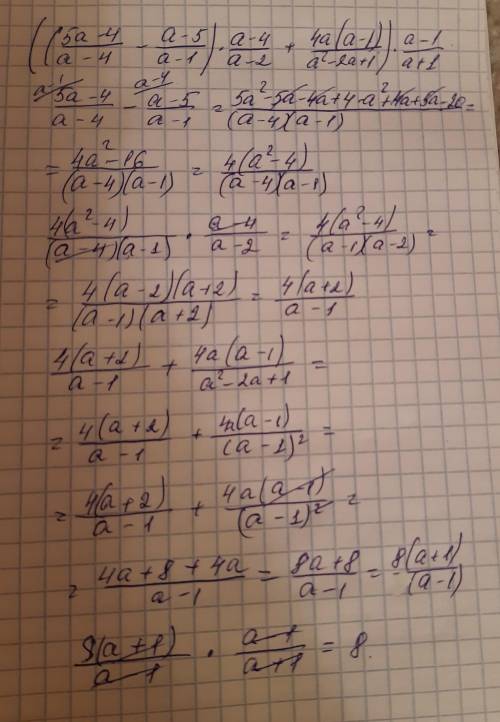 ((5a-4)/(a-4) - (a-5)/(a-1)) · (a-4)/(a-2) + 4a(a-1)/(a²-2a+1)) · (a-1)/(a+1)
a-1 a-4
(5a-4)/(a-4) - (a-5)/(a-1) = (5a²-5a-4a+4-a²+4a+5a-20)/((a-4)(a-1)) =
= (4a²-16)/((a-4)(a-1)) = 4(a²-4)/((a-4)(a-1))
4(a²-4)/((a-4)(a-1)) · (a-4)/(a-2) = 4(a²-4)/((a-1)(a-2)) =
= 4(a-2)(a+2)/((a-1)(a+2)) = 4(a+2)/(a-1)
4(a+2)/(a-1) + 4a(a-1)/(a²-2a+1) =
= 4(a+2)/(a-1) + 4a(a-1)/(a-1)² =
= 4(a+2)/(a-1) + 4a(a-1)/(a-1)² =
= (4a+8+4a)/(a-1) = (8a+8)/(a-1) = 8(a+1)/(a-1)
8(a+1)/(a-1) · (a-1)/(a+1) = 8.